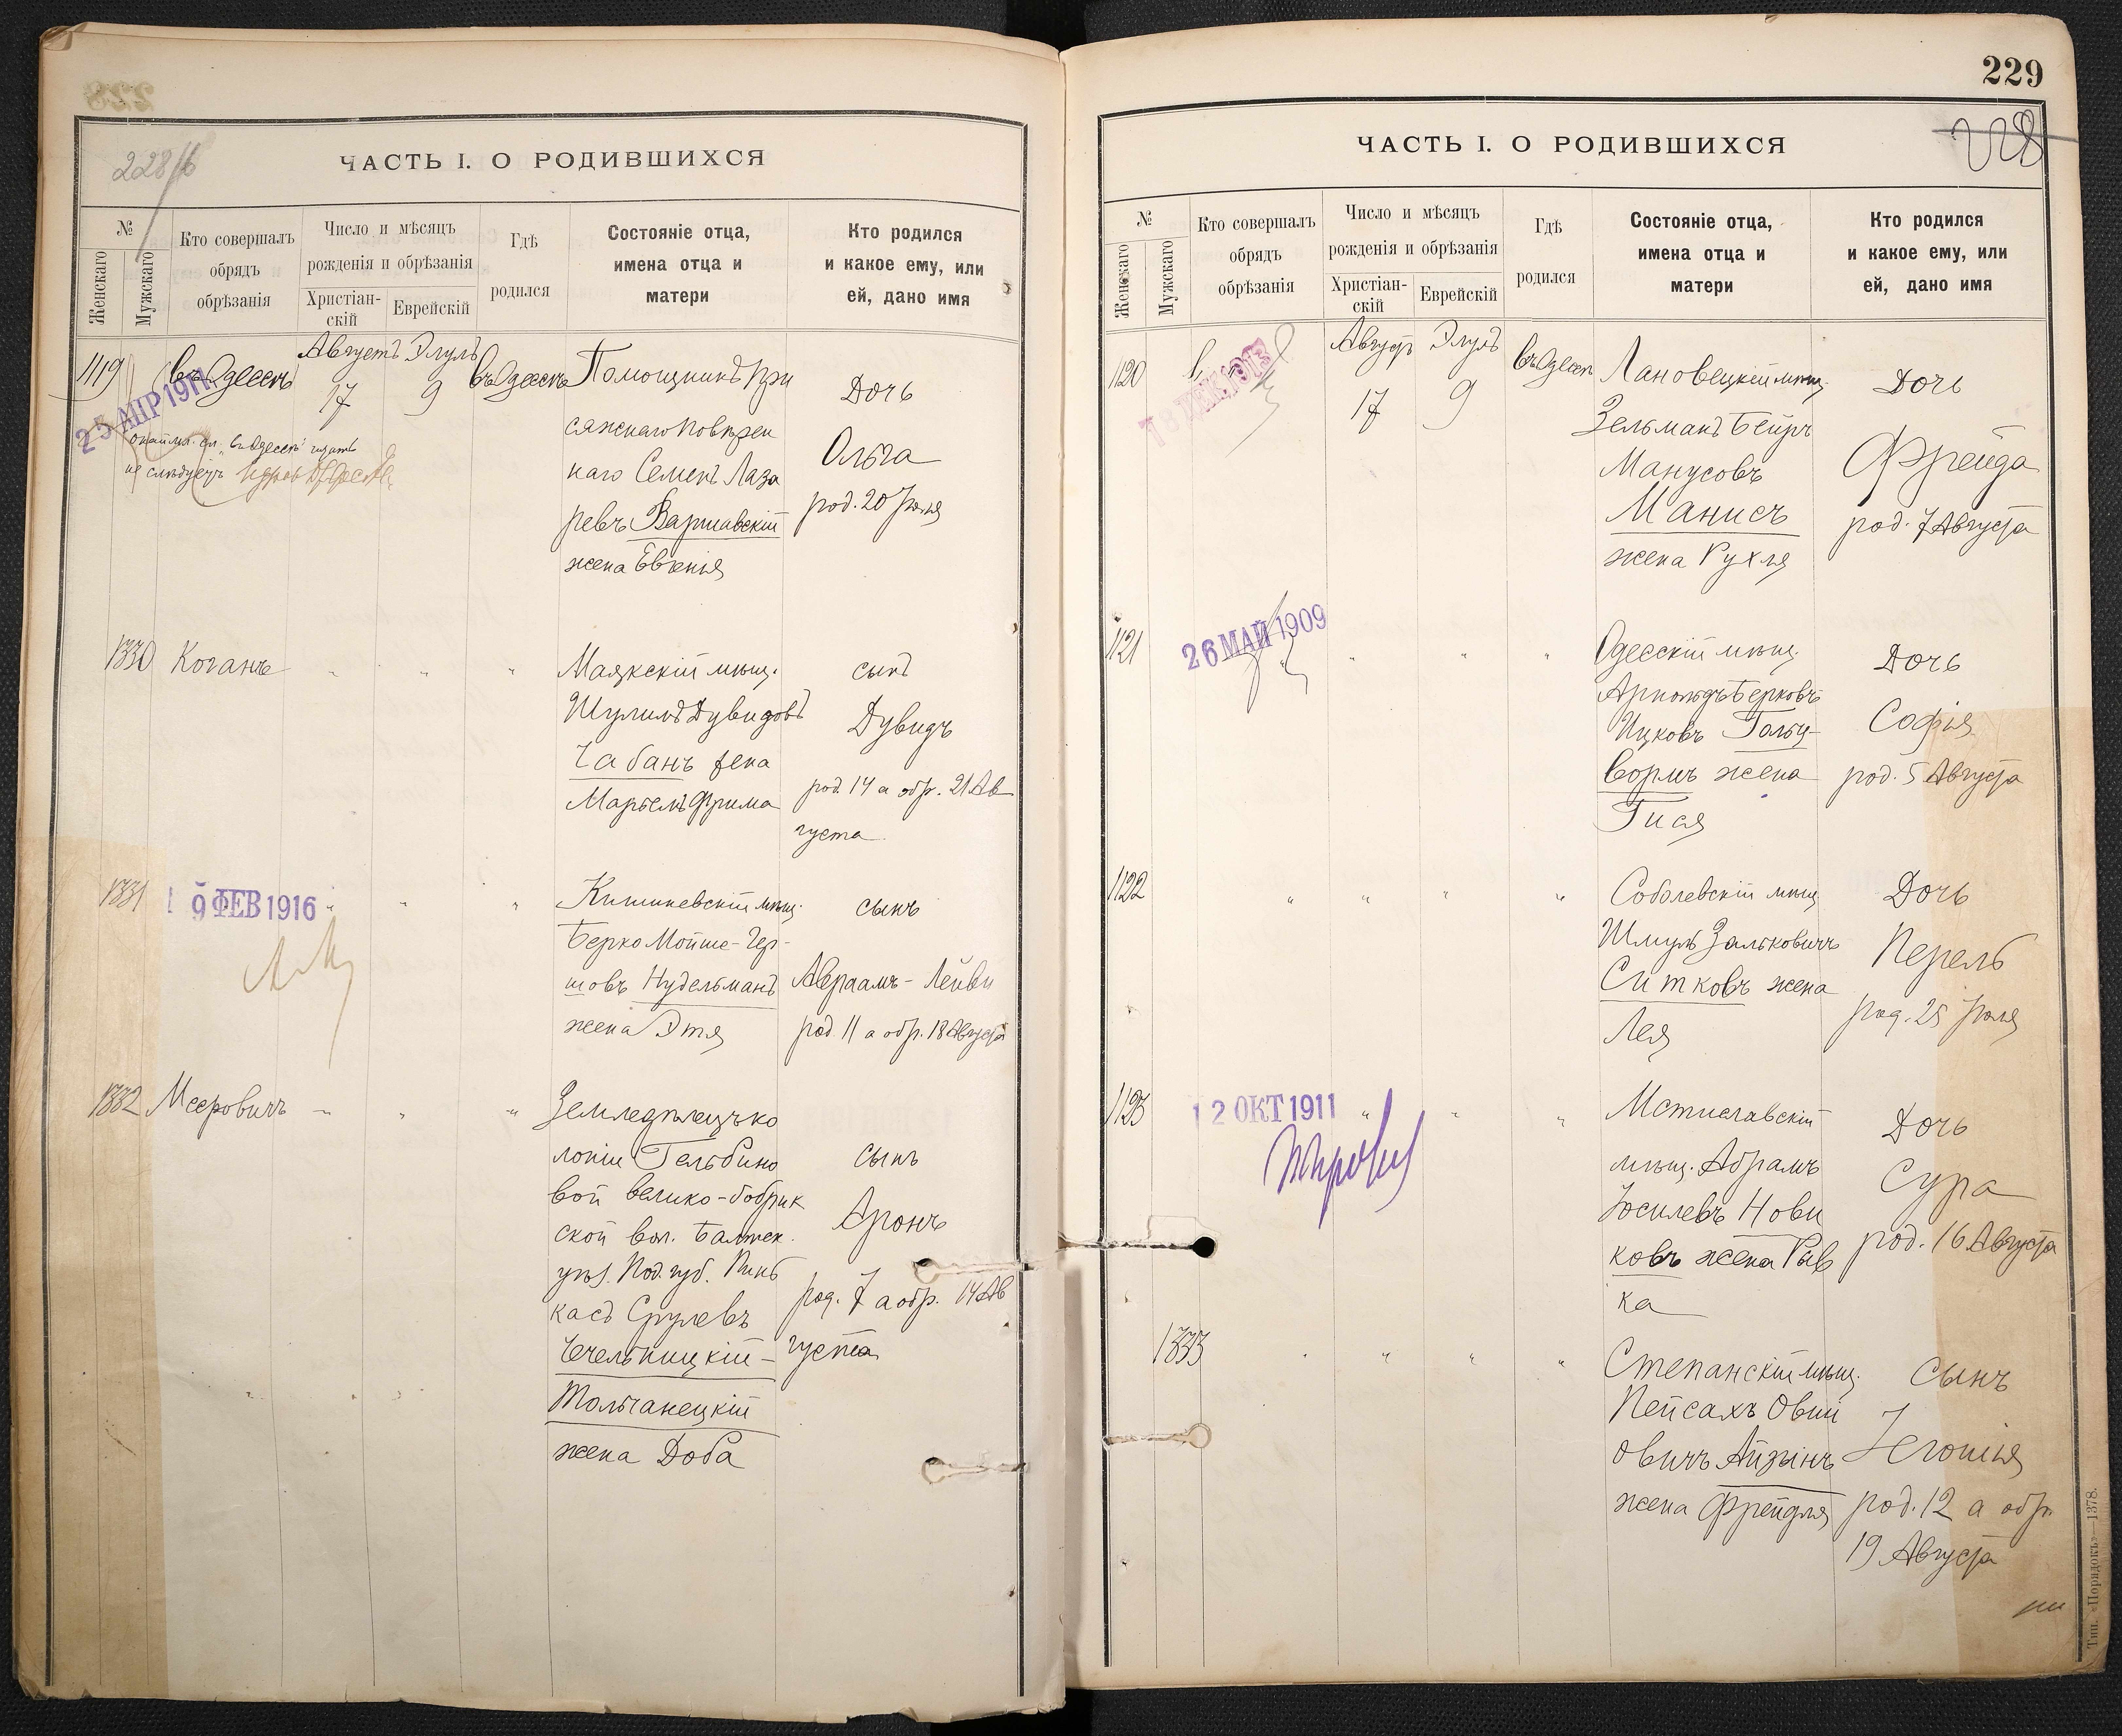 228/б
ЧАСТЬ I. О РОДИВШИХСЯ
№
Женскаго
Мужскаго
Кто совершалъ
обрядъ
обрѣзанія
Число и мѣсяцъ
рожденія и обрѣзанія
Христіан-
скій
Еврейскій
Гдѣ
родился
Состояніе отца,
имена отца и
матери
Кто родился
и какое ему, или
ей, дано имя
1119
въ Одессѣ
Августъ
17
Элулъ
9
въ Одессѣ
25 АПР 1911
сл. "въ Одессѣ" читать
не слѣдуетъ
Помощникъ При
сяжнаго Повѣрен
наго Семенъ Лаза
ревъ Варшавскій
жена Евгенія
Дочь
Ольга
род. 20 Іюля
1330
Коганъ
" " "
Маякскій мѣщ.
Шулимъ Дувидовъ
Чабанъ жена
Марьемъ Фрима
сынъ
Дувидъ
род. 14 а обр. 21 Ав
густа
1331
19 ФЕВ 1916
" " "
Кишиневскій мѣщ.
Берко Мойше-Гер-
шовъ Нудельманъ
жена Этя
сынъ
Авраамъ-Лейви
род. 11 а обр. 18 Августа
1332
Мееровичъ
" " "
Земледѣлецъ ко
лоніи Гельбино
вой велико-бобрик
ской вол. Балтск.
уѣз. Под. губ. Пинь
касъ Срулевъ
Чечельницкій-
Тольчанецкій
жена Доба
сынъ
Аронъ
род. 7 а обр. 14 Ав
густа
229
228
ЧАСТЬ I. О РОДИВШИХСЯ
№
Женскаго
Мужскаго
Кто совершалъ
обрядъ
обрѣзанія
Число и мѣсяцъ
рожденія и обрѣзанія
Христіан-
скій
Еврейскій
Гдѣ
родился
Состояніе отца,
имена отца и
матери
Кто родился
и какое ему, или
ей, дано имя
1120
18 ДЕК 1913
Августъ
17
Элулъ
9
въ Одессѣ
Лановецкій мѣщ.
Зельманъ Бейръ
Манусовъ
Манисъ
жена Рухля
Дочь
Фрейда
род. 7 Августа
1121
26 МАЙ 1909
" " "
Одесскій мѣщ.
Арнольдъ Берковъ
Ицковъ Гольц-
вормъ жена
Гися
Дочь
Софія
род. 5 Августа
1122
" " " "
Соболевскій мѣщ.
Шмуль Зальковичъ
Ситковъ жена
Лея
Дочь
Перель
род. 25 Іюля
1123
12 ОКТ 1911
" " "
Мстиславскій
мѣщ. Абрамъ
Іосилевъ Нови
ковъ жена Рыв
ка
Дочь
Сура
род. 16 Августа
1333
" " " "
Степанскій мѣщ.
Пейсахъ Овши
овичъ Айзинъ
жена Фрейдля
Сынъ
род. 12 а обр.
19 Августа
Тип. «Порядокъ»—1378.